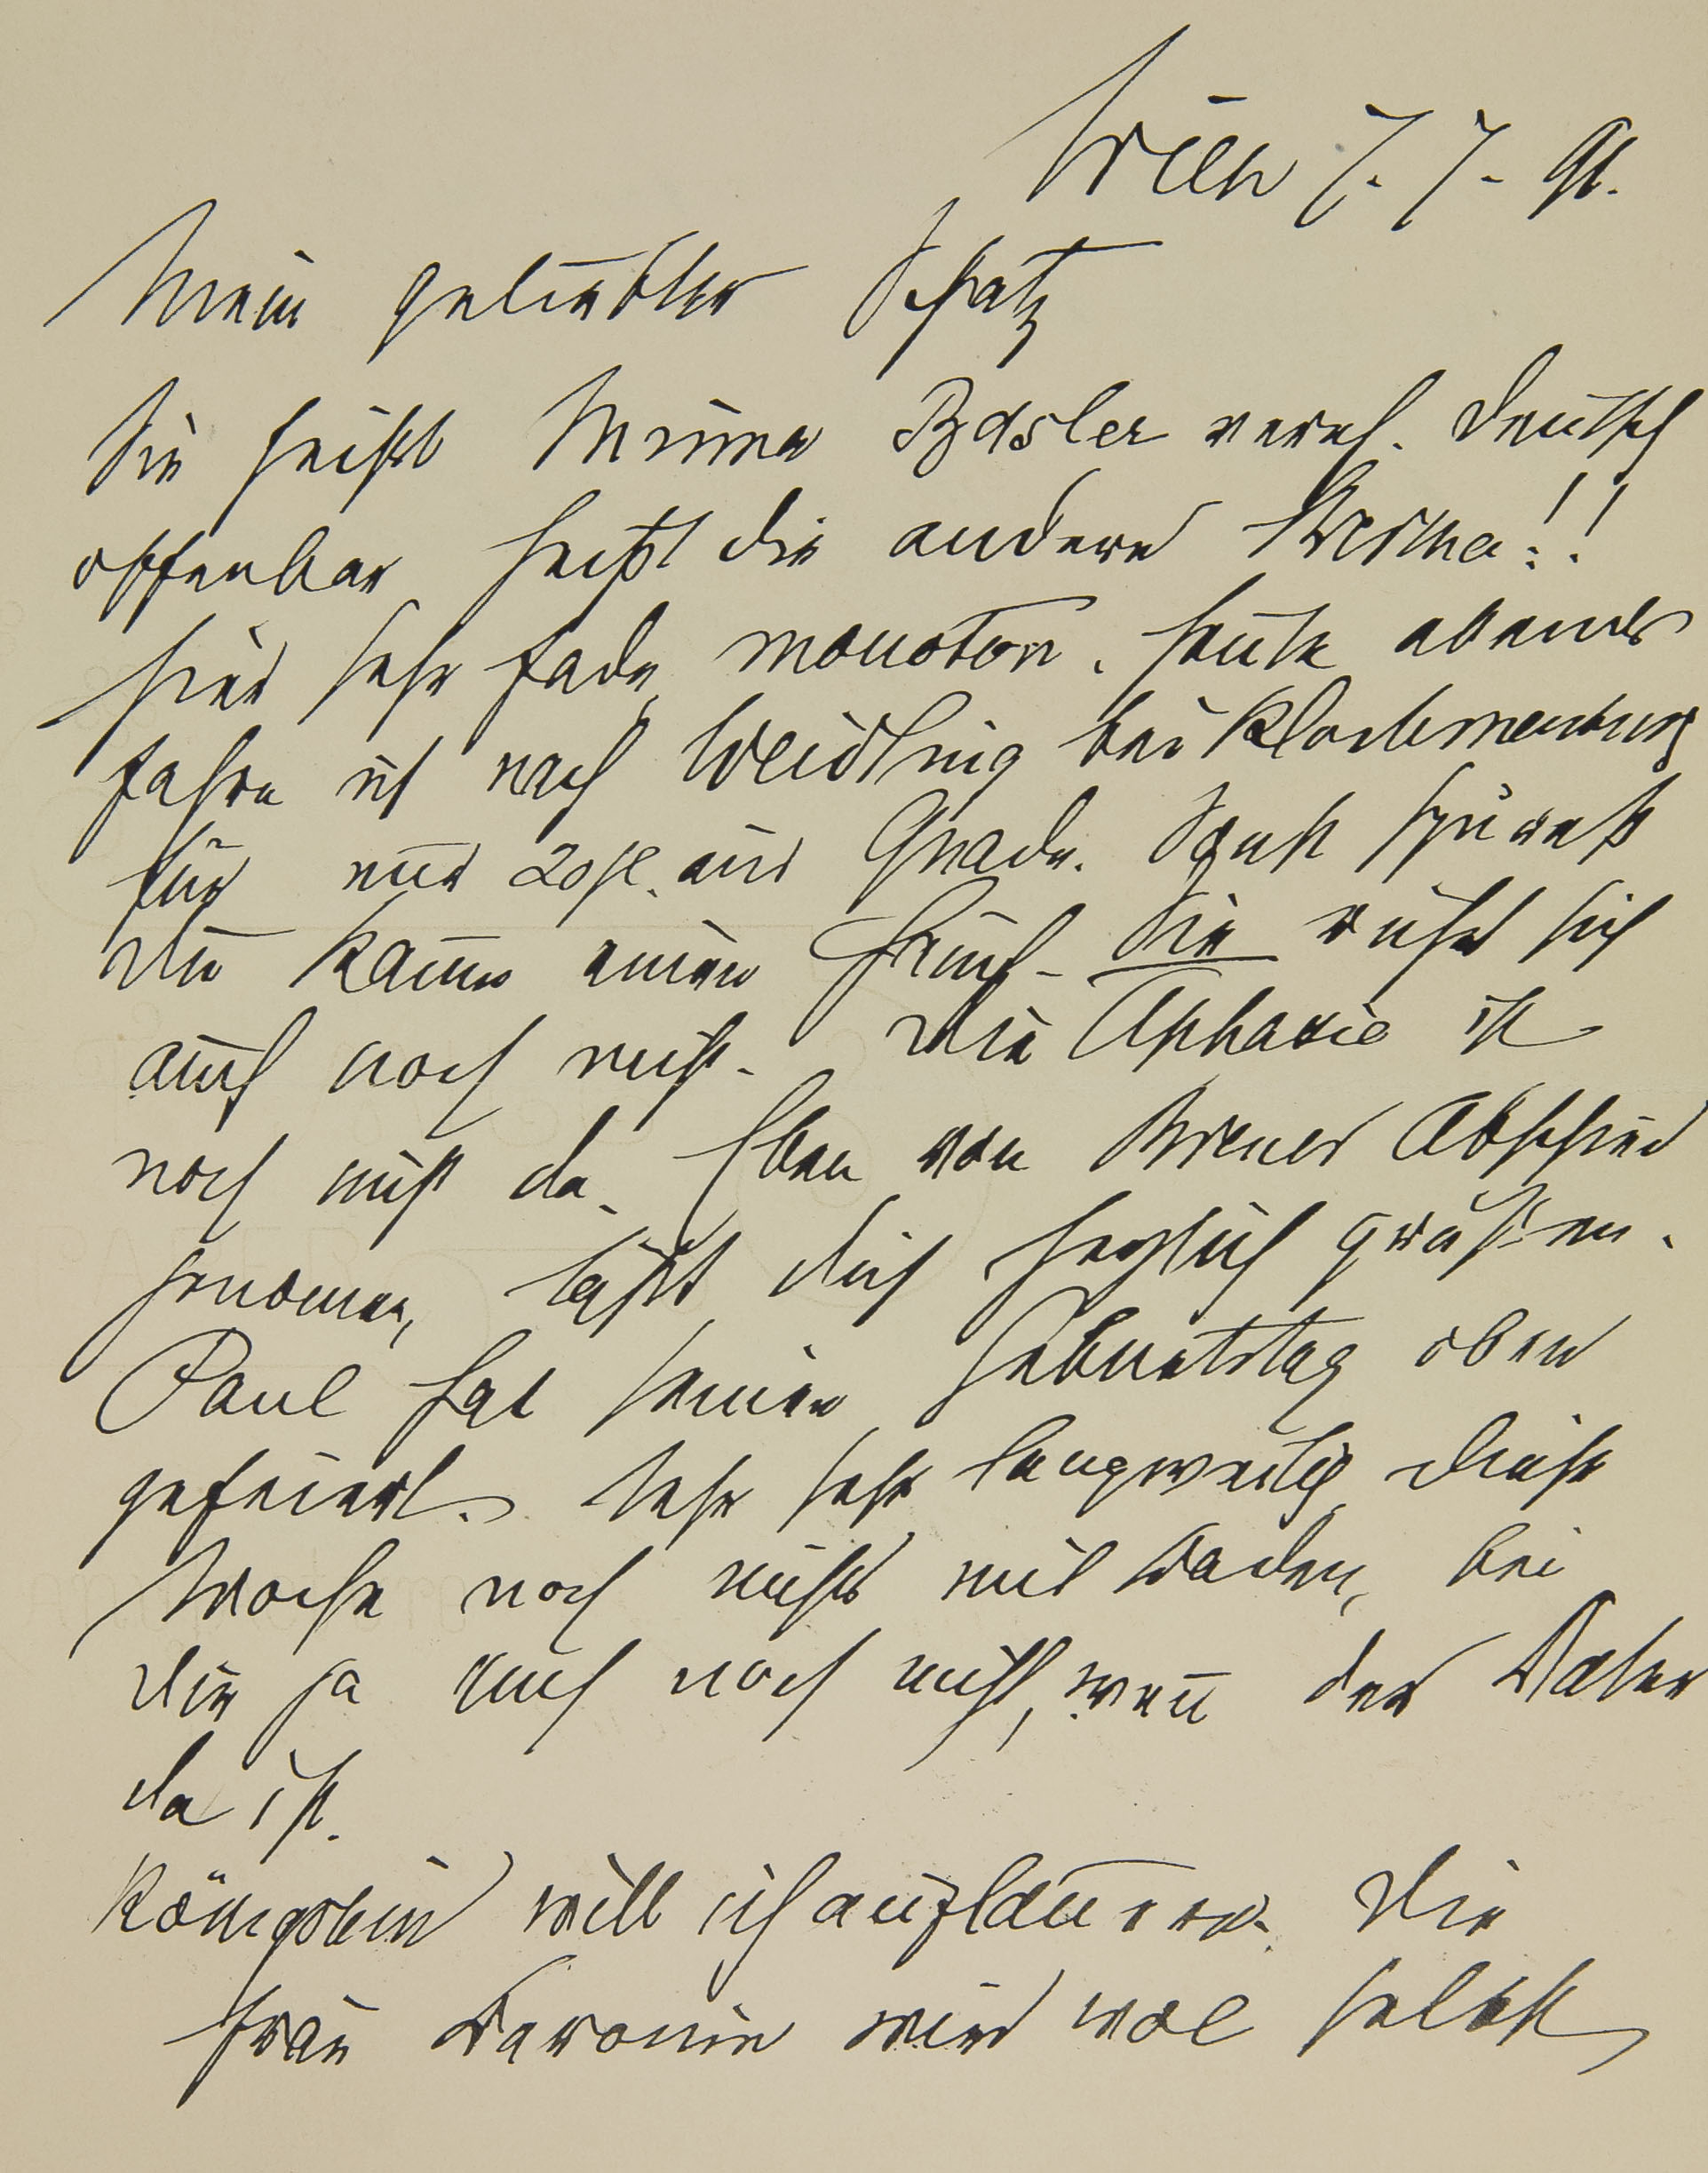 Wien 7. 7. 91.
Mein geliebter Schatz
Sie heißt Minna Basler verh. Deutsch
offenbar heißt die andere Berma!!
Hier sehr fade, monoton. Heute abends
fahre ich nach Weidling bei Klosterneuburg
für nur 20 fl. aus Gnade. Sonst spürest
Du kaum einen Hauch. Sie rührt sich
auch noch nicht. Die Aphasie ist
noch nicht da. Eben von Breuer Abschied
genomen, läßt Dich herzlich grüßen.
Paul hat seinen Geburtstag oben
gefeiert. Sehr sehr langweilig diese
Woche noch nichts mit Baden, bei
Dir ja auch noch nicht, weñ der Vater
da ist.
Königstein will ich auflauern. Die
Frau Baronin wird wol selbst